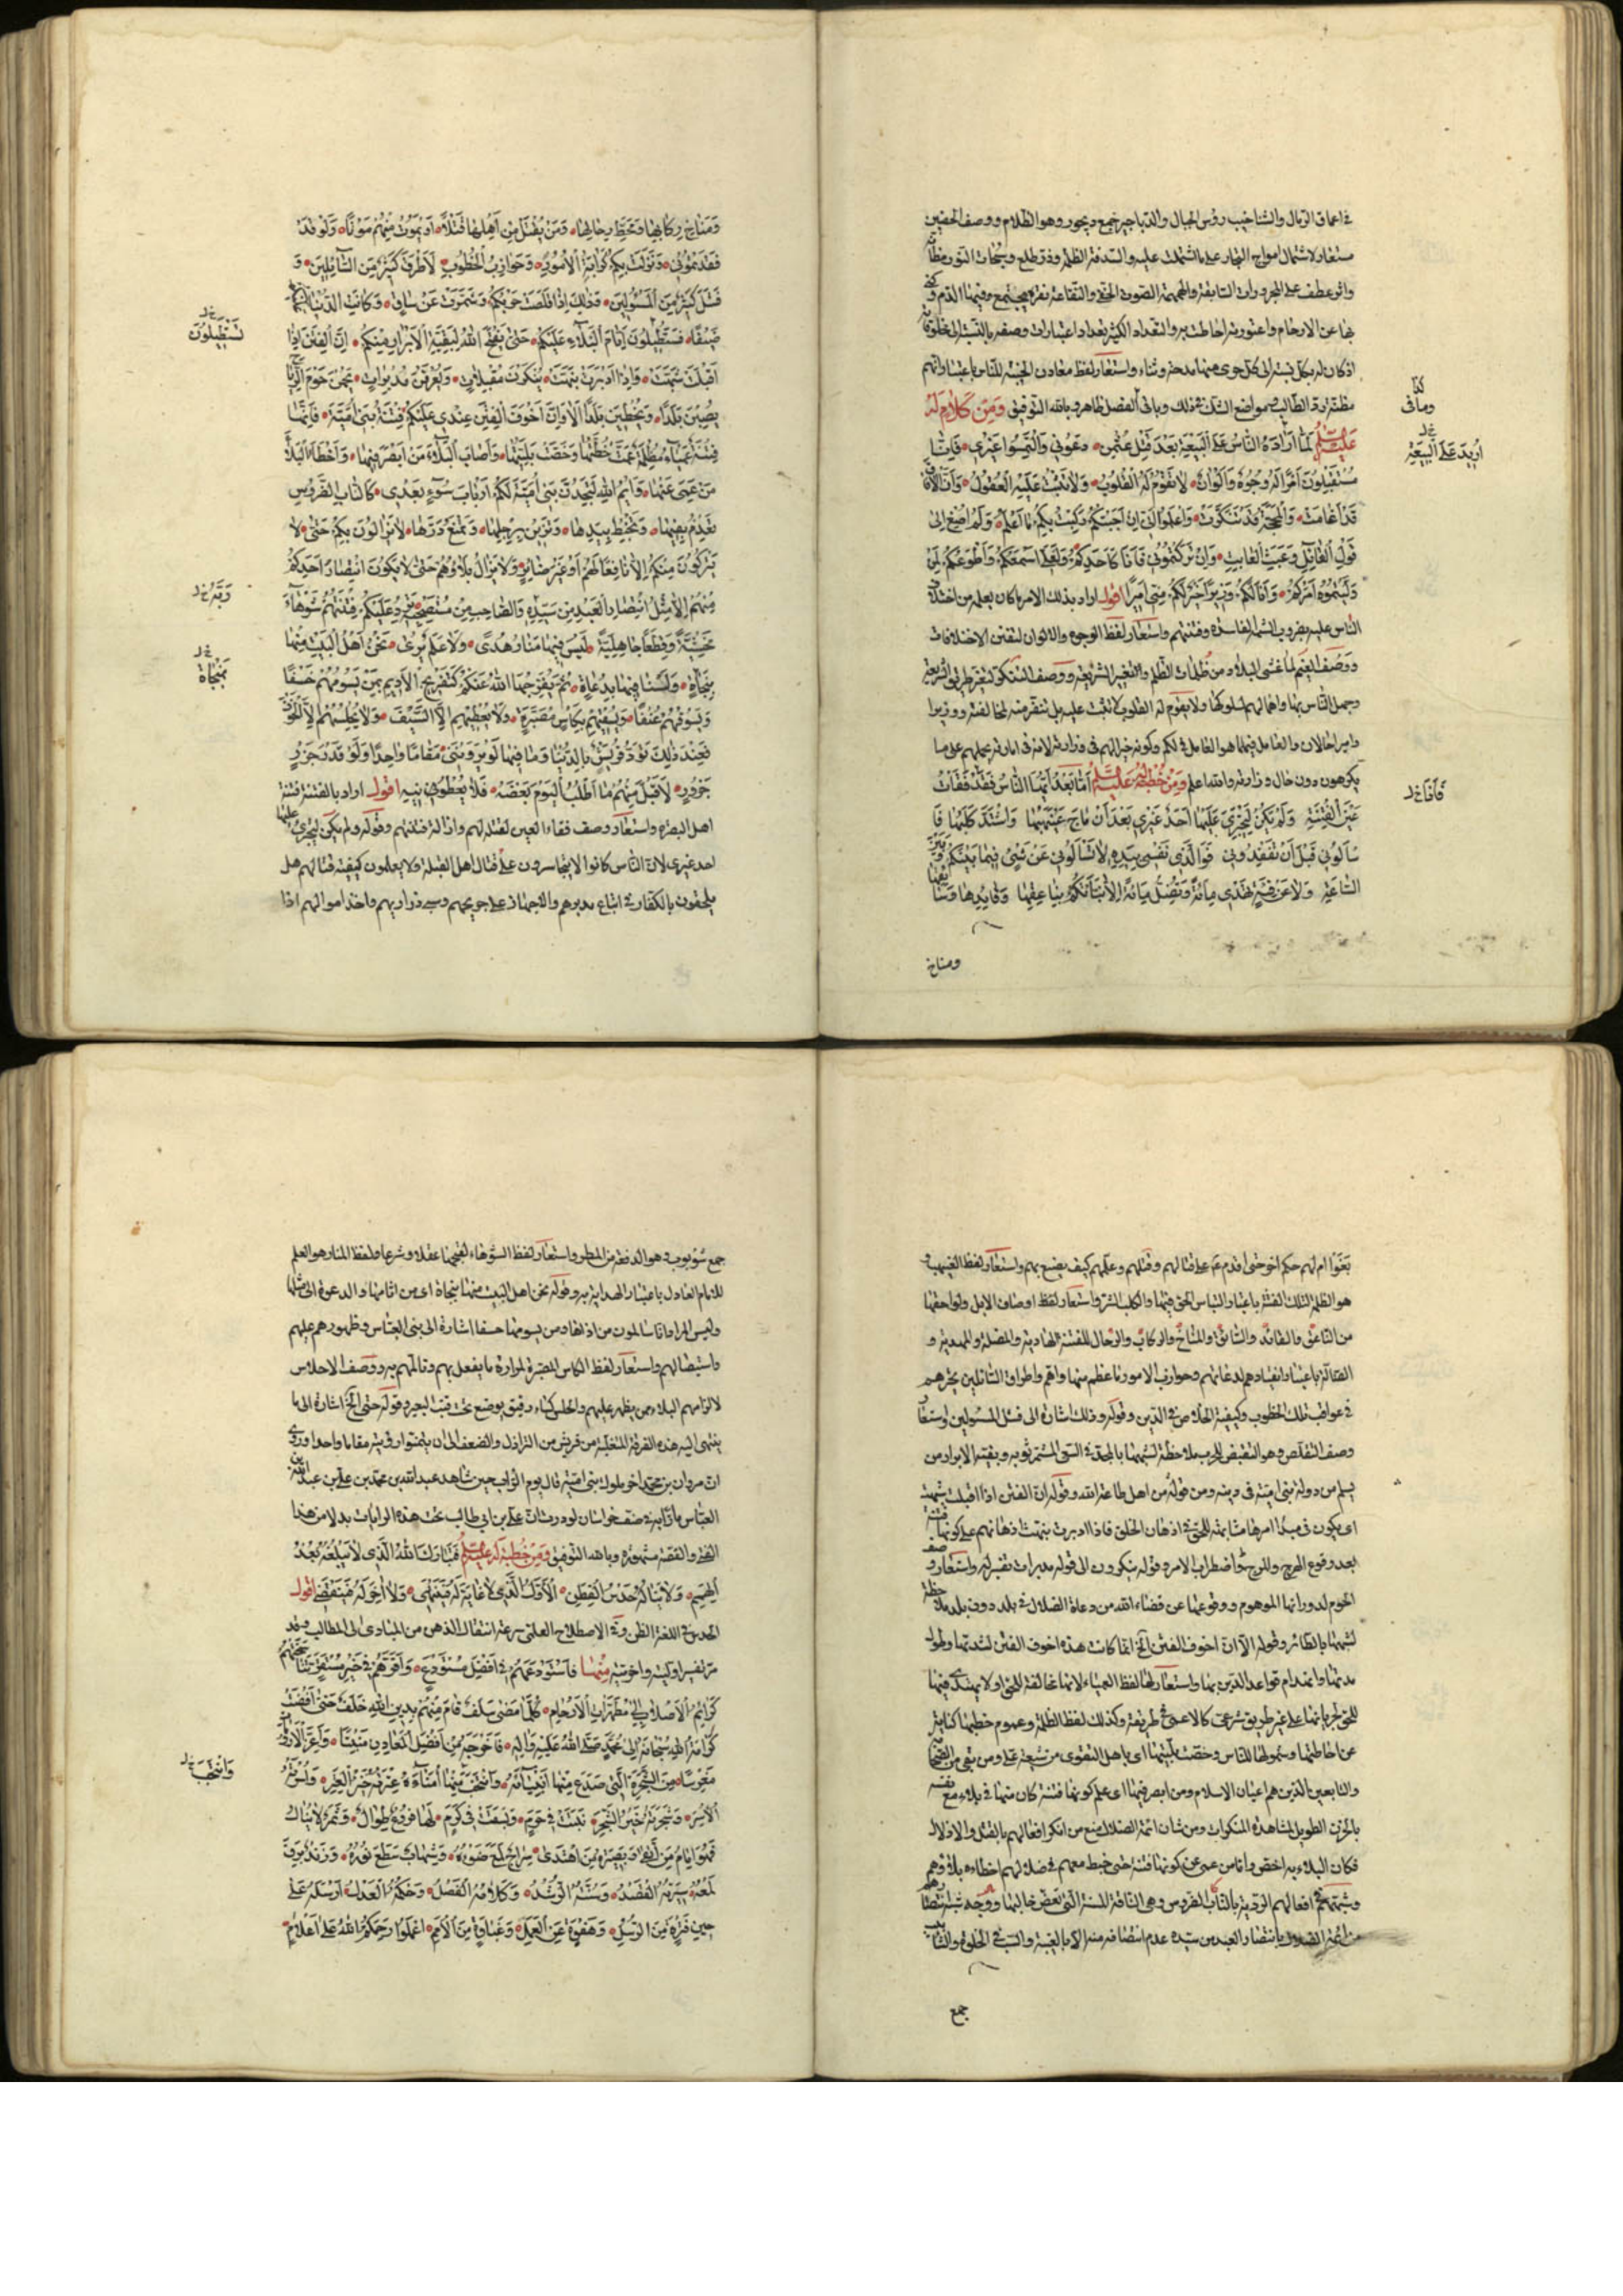 في اعماق الرمال والشناخيب رؤس الجبال والدياجير جمع ديجور وهو الظلام ووصف الحقين
مستعار لاشتمال امواج البحار على ما اشتملت عليه والسدفة الظلمة وذر طلع وسبحات النور مظانه
اذ كان له بكل نسبة الى كل جزء منها مدحة وثناء واستعار لفظ معادن الخيبة للناس باعتبار انهم
مظنة ردة الطالب ومواضع الشك في ذلك وباقي الفصل ظاهر وبالله التوفيق وَمِنْ كَلَامٍ لَهُ
عليه السلم لَمَّا اَرَادَهُ النَّاسُ عَلَى الْبَيْعَةِ بَعْدَ قَتْلِ عُثْمٰنَ دَعُونِي وَالْتَمِسُوا غَيْرِي فَاِنَّا
مُسْتَقْبِلُونَ اَمْرًا لَهُ وُجُوهٌ وَاَلْوَانٌ لَا تَقُومُ لَهُ الْقُلُوبُ وَلَا تَثْبُتُ عَلَيْهِ الْعُقُولُ وَاِنَّ الْآفَاقَ
قَدْ اَغَامَتْ وَالْمَحَجَّةَ قَدْ تَنَكَّرَتْ وَاعْلَمُوا اَنِّي اِنْ اَجَبْتُكُمْ رَكِبْتُ بِكُمْ مَا اَعْلَمُ وَلَمْ اُصْغِ اِلَى
قَوْلِ الْقَائِلِ وَعَتْبِ الْعَاتِبِ وَاِنْ تَرَكْتُمُونِي فَاَنَا كَاَحَدِكُمْ وَلَعَلِّي اَسْمَعُكُمْ وَاَطْوَعُكُمْ لِمَنْ
وَلَّيْتُمُوهُ اَمْرَكُمْ وَاَنَا لَكُمْ وَزِيرًا خَيْرٌ لَكُمْ مِنِّي اَمِيرًا اقول اراد بذلك الامر ما كان يعلمه من اختلاف
الناس عليه بضروب الشبه الفاسدة وفتنتهم واستعار لفظ الوجوه والالوان لتفنن الاختلافات
ووصف الغيم لما غشى البلاد من ظلمات الظلم والتغيير الشريعة ووصف التنكر لتغير طريق الشريعة
وجهل الناس بها واهمالهم لسلوكها ولا يقوم له القلوب لا تثبت عليه بل تنفر منه لمخالفته ووزيرا
يكرهون دون حال وزارته واقتداء علم وَمِنْ خُطْبَةٍ لَهُ عليه السلم اَمَّا بَعْدُ اَيُّهَا النَّاسُ فَقَدْ فَقَأْتُ
عَيْنَ الْفِتْنَةِ وَلَمْ يَكُنْ لِيَجْتَرِئَ عَلَيْهَا اَحَدٌ غَيْرِي بَعْدَ اَنْ مَاجَ غَيْهَبُهَا وَاشْتَدَّ كَلَبُهَا فَا
سْاَلُونِي قَبْلَ اَنْ تَفْقِدُونِي فَوَالَّذِي نَفْسِي بِيَدِهِ لَا تَسْاَلُونِي عَنْ شَيْءٍ فِيمَا بَيْنَكُمْ وَبَيْنَ
السَّاعَةِ وَلَا عَنْ فِئَةٍ تَهْدِي مِائَةً وَتُضِلُّ مِائَةً اِلَّا نَبَّأْتُكُمْ بِنَاعِقِهَا وَقَائِدِهَا وَسَائِقِهَا
ومناخ
كذا
وما في
اُرِيدَ عَلَى الْبَيْعَةِ
فَاَنَا خ ل
وَمُنَاخِ رِكَابِهَا وَمَحَطِّ رِحَالِهَا وَمَنْ يُقْتَلُ مِنْ اَهْلِهَا قَتْلًا اَوْ يَمُوتُ مِنْهُمْ مَوْتًا وَلَوْ قَدْ
فَقَدْتُمُونِي وَنَزَلَتْ بِكُمْ كَرَائِهُ الْاُمُورِ وَحَوَازِبُ الْخُطُوبِ لَاَطْرَقَ كَثِيرٌ مِنَ السَّائِلِينَ وَ
فَشِلَ كَثِيرٌ مِنَ الْمَسْؤُلِينَ وَذَلِكَ اِذَا قَلَّصَتْ حَرْبُكُمْ وَشَمَّرَتْ عَنْ سَاقٍ وَكَانَتِ الدُّنْيَا عَلَيْكُمْ
ضَيْقًا فَسَتَطِيلُونَ اَيَّامَ الْبَلَاءِ عَلَيْكُمْ حَتَّى يَفْتَحَ اللّٰهُ لِبَقِيَّةِ الْاَبْرَارِ مِنْكُمْ اِنَّ الْفِتَنَ اِذَا
اَقْبَلَتْ شَبَّهَتْ وَاِذَا اَدْبَرَتْ نَبَّهَتْ يُنْكَرْنَ مُقْبِلَاتٍ وَيُعْرَفْنَ مُدْبِرَاتٍ يَحُمْنَ حَوْمَ الرِّيَاحِ
يُصِبْنَ بَلَدًا وَيُخْطِئْنَ بَلَدًا اَلَا وَاِنَّ اَخْوَفَ الْفِتَنِ عِنْدِي عَلَيْكُمْ فِتْنَةُ بَنِي اُمَيَّةَ فَاِنَّهَا
فِتْنَةٌ عَمْيَاءُ مُظْلِمَةٌ عَمَّتْ خُطَّتُهَا وَخَصَّتْ بَلِيَّتُهَا وَاَصَابَ الْبَلَاءُ مَنْ اَبْصَرَ فِيهَا وَاَخْطَاَ الْبَلَاءُ
مَنْ عَمِيَ عَنْهَا وَاَيْمُ اللّٰهِ لَتَجِدُنَّ بَنِي اُمَيَّةَ لَكُمْ اَرْبَابَ سُوْءٍ بَعْدِي كَالنَّابِ الضَّرُوسِ
تَعْذِمُ بِفِيهَا وَتَخْبِطُ بِيَدِهَا وَتَزْبِنُ بِرِجْلِهَا وَتَمْنَعُ دَرَّهَا لَا يَزَالُونَ بِكُمْ حَتَّى لَا
يَتْرُكُونَ مِنْكُمْ اِلَّا نَافِعًا لَهُمْ اَوْ غَيْرَ ضَائِرٍ وَلَا يَزَالُ بَلَاؤُهُمْ حَتَّى لَا يَكُونَ انْتِصَارُ اَحَدِكُمْ
مِنْهُمْ اِلَّا مِثْلَ انْتِصَارِ الْعَبْدِ مِنْ سَيِّدِهِ وَالصَّاحِبِ مِنْ مُسْتَصْحِبِهِ تَرِدُ عَلَيْكُمْ فِتْنَتُهُمْ شَوْهَاءَ
مَخْشِيَّةً وَقِطَعًا جَاهِلِيَّةً لَيْسَ فِيهَا مَنَارُ هُدًى وَلَا عَلَمٌ يُرَى نَحْنُ اَهْلَ الْبَيْتِ مِنْهَا
بِنَجَاةٍ وَلَسْنَا فِيهَا بِدُعَاةٍ ثُمَّ يُفَرِّجُهَا اللّٰهُ عَنْكُمْ كَتَفْرِيجِ الْاَدِيمِ بِمَنْ يَسُومُهُمْ خَسْفًا
وَيَسُوقُهُمْ عُنْفًا وَيَسْقِيهِمْ بِكَأْسٍ مُصَبَّرَةٍ وَلَا يُعْطِيهِمْ اِلَّا السَّيْفَ وَلَا يُحْلِسُهُمْ اِلَّا الْخَوْفَ
فَعِنْدَ ذٰلِكَ تَوَدُّ قُرَيْشٌ بِالدُّنْيَا وَمَا فِيهَا لَوْ يَرَوْنَنِي مَقَامًا وَاحِدًا وَلَوْ قَدْرَ جَزْرِ
جَزُورٍ لِاَقْبَلَ مِنْهُمْ مَا اَطْلُبُ الْيَوْمَ بَعْضَهُ فَلَا يُعْطُونِيهِ اقول اراد بالفتنة فتنة
اهل البصرة واستعار وصف فقاء العين لقتله لهم وازالة فتنتهم وقوله ولم يكن ليجترئ عليها
احد غيري لان الناس كانوا لا يتجاسرون على قتال اهل القبلة ولا يعلمون كيفية قتالهم هل
يلحقون بالكفار في اتباع مدبرهم والاجهاز على جريحهم وسبي ذراريهم واخذ اموالهم اذا
لَتَسْتَطِيلُونَ
خ ل
بِمَنْجَاةٍ
بَغَوْا ام لهم حكم اخر حتى اقدم ع على قتالهم وقتلهم وعلمهم كيف يصنع بهم واستعار لفظ الغيهب و
هو الظلمة لتلك الفتنة باعتبار التباس الحق فيها والكلب الشر واستعار لفظ اوصاف الابل ولواحقها
من الناعق والقائد والسائق والمناخ والركاب والرحال للفتنة الهادية والمضلة والمهدية و
الضالة باعتبار انقيادهم لدعاتهم وحوازب الامور ما عظم منها واهم واطراق السائلين لحيرتهم
في عواقب تلك الخطوب وكيفية الخلاص في الدين وقوله وذلك اشارة الى فشل المسئولين واستعار
وصف التقلص وهو التقبض للحرب ملاحظة لشبهها بالمجد في السعي المشمر ثوبه وبقية الابرار من
يسلم من دولة بني امية في دينه ومن قوله من اهل طاعة الله وقوله ان الفتن اذا اقبلت شبهت
اى يكون في مبدا امرها مشابهة للحق في اذهان الخلق فاذا ادبرت نبهت اذهانهم على كونها فتنة
بعد وقوع الهرج والمرج واضطراب الامر وقوله ينكرون الى قوله مدبرات تفسير له واستعار وصف
الحوم لدورانها الموهوم ووقوعها عن قضاء الله من دعاة الضلال في بلد دون بلد ملاحظة
لشبهها بالطائر وقوله الا ان اخوف الفتن الخ انما كانت هذه اخوف الفتن لشدتها وطول
مدتها وانهدام قواعد الدين بها واستعار لها لفظ العمياء لانها مخالفة للحق او لا يهتدى فيها
للحق لجريانها على غير طريق شرعي كالاعمى في طريقه وكذلك لفظ الظلمة وعموم خطبها كناية
عن احاطتها وشمولها للناس وخصت بليتها اى باهل التقوى من شيعة على ومن بقي من الصحابة
والتابعين الذين هم اعيان الاسلام ومن ابصر فيها اى علم كونها فتنة كان منها في بلاء مع نفسه
بالحزن الطويل لمشاهدة المنكرات ومن شان ائمة الضلال تتبع من انكر افعالهم بالقتل والاذلال
فكان البلاء به اخص واما من عمى عن كونها فتنة حتى خبط معهم في ضلالهم اخطاءه بلاؤهم
وشبههم في افعالهم الردية بالناب الضروس وهي الناقة المسنة التي تعض حالبها ووجه شبه انتصارهم
من ائمة الضلال بانتصار العبد من سيده عدم انتصافه منه الا بالغيبة والسب في الخلوة والشابيب
جمع
جمع شؤبوب وهو الدفعة من المطر واستعار لفظ الشوهاء لقبحها عقلا وشرعا ولفظ المنار هو العلم
للامام العادل باعتبار الهداية به وقوله نحن اهل البيت منها بنجاة اى من اثامها والدعوة الى مثلها
وليس المراد انا سالمون من اذاها ومن يسومها خسفا اشارة الى بني العباس وظهورهم عليهم
واستيصالهم واستعار لفظ الكاس المصبرة لمرارة ما يفعل بهم وقتالهم به ووصف الاحلاس
لالزامهم البلاء ممن يظهر عليهم والحلس كساء رقيق يوضع تحت قتب البعير وقوله حتى الخ اشارة الى ما
ينتهى اليه هذه الفرقة المتغلبة من قريش من التزاذل والضعف الى ان يتمنوا رؤيته مقاما واحدا وروى
ان مروان بن محمد اخر ملوك بني امية قال يوم الزاب حين شاهد عبد الله بن محمد بن علي بن عبد الله بن
العباس مارا به في صف خراسان لوددت ان علي بن ابي طالب تحت هذه الرايات بدلا من هذا
الفتى والقصة مشهورة وبالله التوفيق وَمِنْ خُطْبَةٍ لَهُ عليه السلم فَتَبَارَكَ اللّٰهُ الَّذِي لَا يَبْلُغُهُ بُعْدُ
الْهِمَمِ وَلَا يَنَالُهُ حَدْسُ الْفِطَنِ الْاَوَّلُ الَّذِي لَا غَايَةَ لَهُ فَيَنْتَهِيَ وَلَا آخِرَ لَهُ فَيَنْقَضِيَ اقول
الحدس في اللغة الظن وفي الاصطلاح العلمي سرعة انتقال الذهن من المبادئ الى المطالب وقد
مر تفسير اوليته واخريته مِنْهَا فَاسْتَوْدَعَهُمْ فِي اَفْضَلِ مُسْتَوْدَعٍ وَاَقَرَّهُمْ فِي خَيْرِ مُسْتَقَرٍّ تَنَاسَخَتْهُمْ
كَرَائِمُ الْاَصْلَابِ اِلَى مُطَهَّرَاتِ الْاَرْحَامِ كُلَّمَا مَضَى سَلَفٌ قَامَ مِنْهُمْ بِدِينِ اللّٰهِ خَلَفٌ حَتَّى اَفْضَتْ
كَرَامَةُ اللّٰهِ سُبْحَانَهُ اِلَى مُحَمَّدٍ صَلَّى اللّٰهُ عَلَيْهِ وَآلِهِ فَاَخْرَجَهُ مِنْ اَفْضَلِ الْمَعَادِنِ مَنْبِتًا وَاَعَزِّ الْاَرُومَاتِ
مَغْرِسًا مِنَ الشَّجَرَةِ الَّتِي صَدَعَ مِنْهَا اَنْبِيَاءَهُ وَانْتَخَبَ مِنْهَا اُمَنَاءَهُ عِتْرَتُهُ خَيْرُ الْعِتَرِ وَاُسْرَتُهُ خَيْرُ
الْاُسَرِ وَشَجَرَتُهُ خَيْرُ الشَّجَرِ نَبَتَتْ فِي حَرَمٍ وَبَسَقَتْ فِي كَرَمٍ لَهَا فُرُوعٌ طِوَالٌ وَثَمَرٌ لَا يُنَالُ
فَهُوَ اِمَامُ مَنِ اتَّقَى وَبَصِيرَةُ مَنِ اهْتَدَى سِرَاجٌ لَمَعَ ضَوْءُهُ وَشِهَابٌ سَطَعَ نُورُهُ وَزَنْدٌ بَرَقَ
لَمْعُهُ سِيرَتُهُ الْقَصْدُ وَسُنَّتُهُ الرُّشْدُ وَكَلَامُهُ الْفَصْلُ وَحُكْمُهُ الْعَدْلُ اَرْسَلَهُ عَلَى
حِينِ فَتْرَةٍ مِنَ الرُّسُلِ وَهَفْوَةٍ عَنِ الْعَمَلِ وَغَبَاوَةٍ مِنَ الْاُمَمِ اعْمَلُوا رَحِمَكُمُ اللّٰهُ عَلَى اَعْلَامٍ
وَانْتَجَبَ خ ل